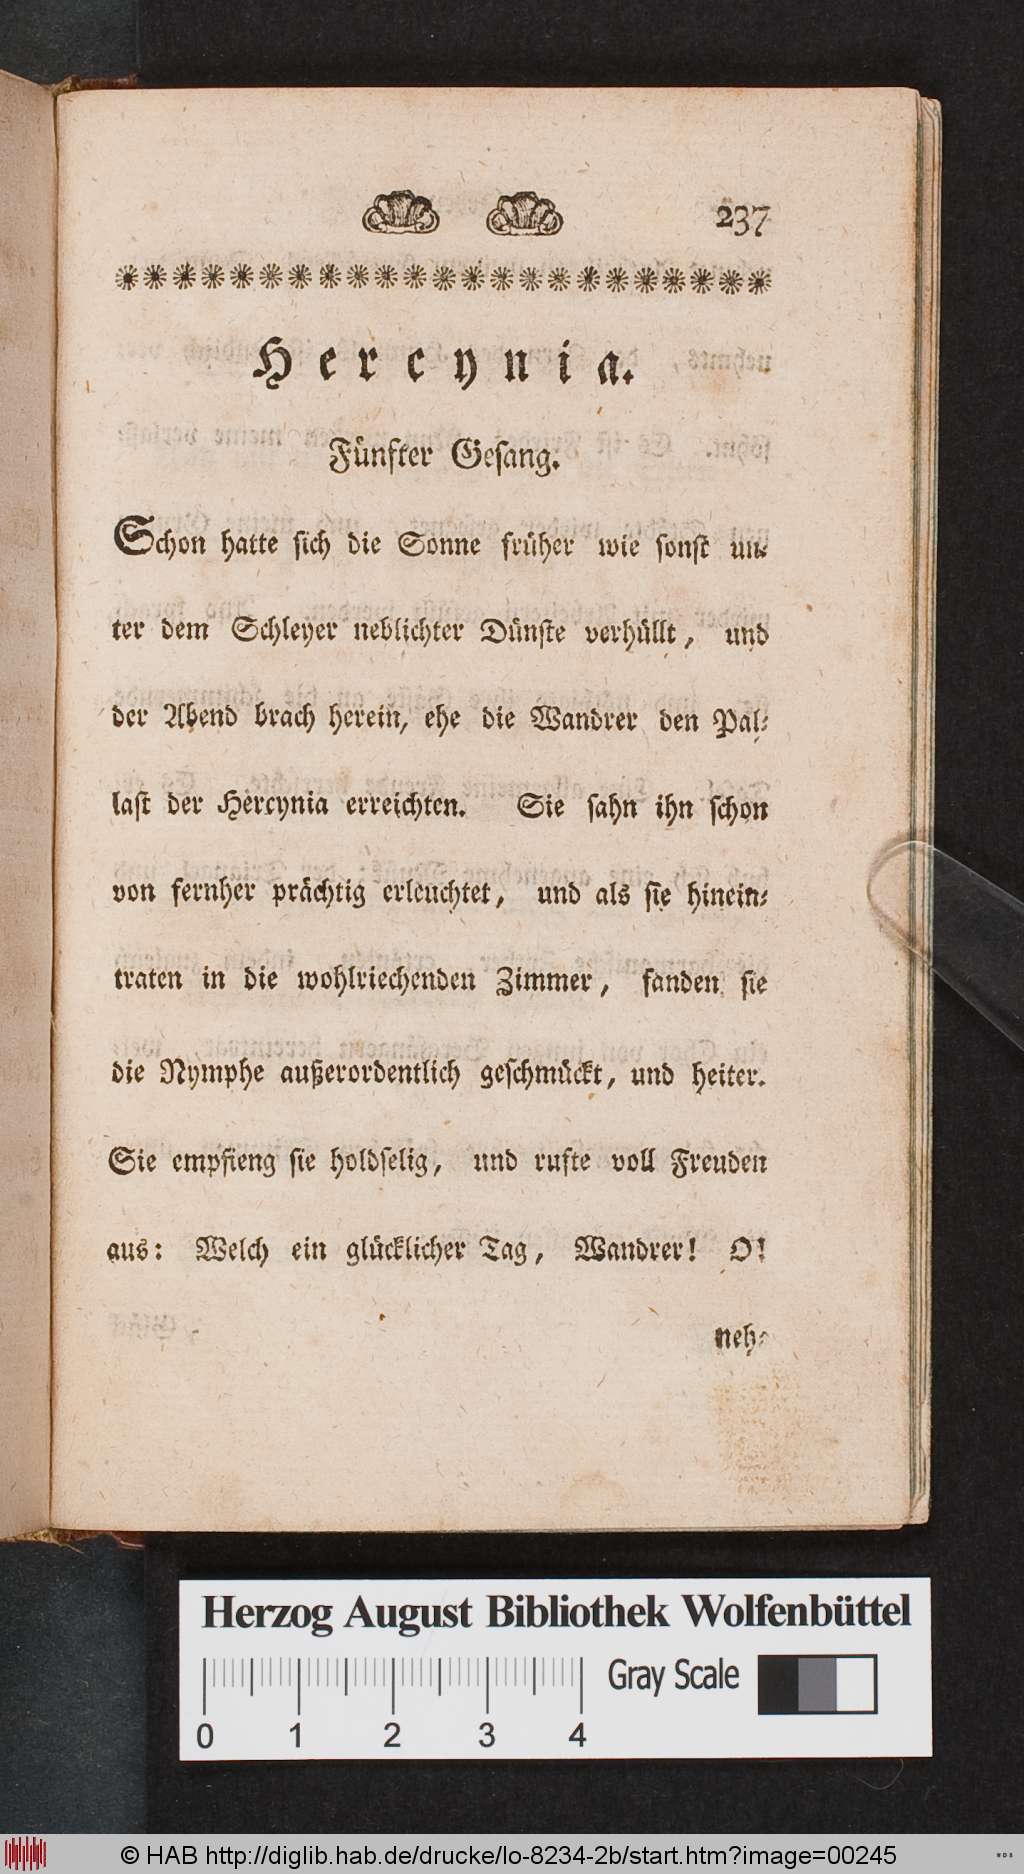 237
Hercynia.
Fünfter Gesang.
Schon hatte sich die Sonne früher wie sonst un-
ter dem Schleyer neblichter Dünste verhüllt, und
der Abend brach herein, ehe die Wandrer den Pal-
last der Hercynia erreichten. Sie sahn ihn schon
von fernher prächtig erleuchtet, und als sie hinein-
traten in die wohlriechenden Zimmer, fanden sie
die Nymphe außerordentlich geschmückt, und heiter.
Sie empfieng sie holdselig, und rufte voll Freuden
aus: Welch ein glücklicher Tag, Wandrer! O!
neh-
Herzog August Bibliothek Wolfenbüttel
Gray Scale
0 1 2 3 4
© HAB http://diglib.hab.de/drucke/lo-8234-2b/start.htm?image=00245